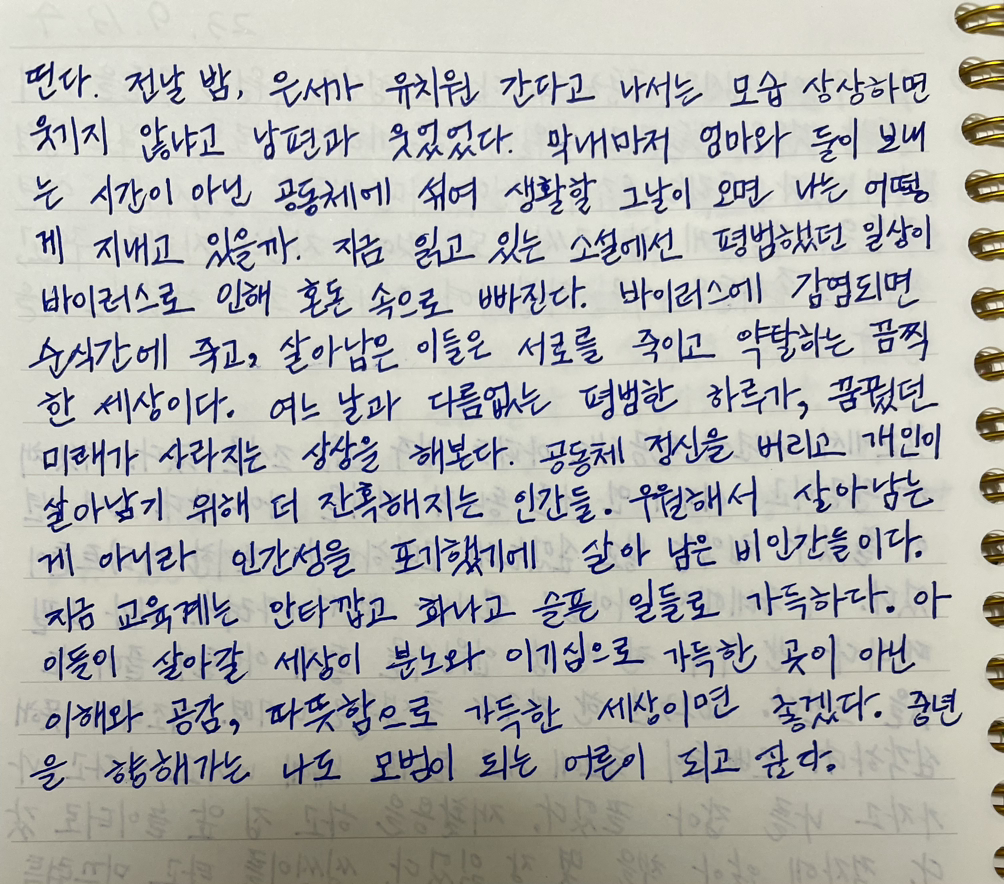 떤다. 전날 밤, 은서가 유치원 간다고 나서는 모습 상상하면
웃기지 않냐고 남편과 웃었었다. 막내마저 엄마와 둘이 보내
는 시간이 아닌 공동체에 섞여 생활할 그날이 오면 나는 어떻
게 지내고 있을까. 지금 읽고 있는 소설에선 평범했던 일상이
바이러스로 인해 혼돈 속으로 빠진다. 바이러스에 감염되면
순식간에 죽고, 살아남은 이들은 서로를 죽이고 약탈하는 끔찍
한 세상이다. 여느 날과 다름없는 평범한 하루가, 꿈꿨던
미래가 사라지는 상상을 해본다. 공동체 정신을 버리고 개인이
살아남기 위해 더 잔혹해지는 인간들. 우월해서 살아남는
게 아니라 인간성을 포기했기에 살아 남은 비인간들이다.
지금 교육계는 안타깝고 화나고 슬픈 일들로 가득하다. 아
이들이 살아갈 세상이 분노와 이기심으로 가득한 곳이 아닌
이해와 공감, 따뜻함으로 가득한 세상이면 좋겠다. 중년
을 향해가는 나도 모범이 되는 어른이 되고 싶다.